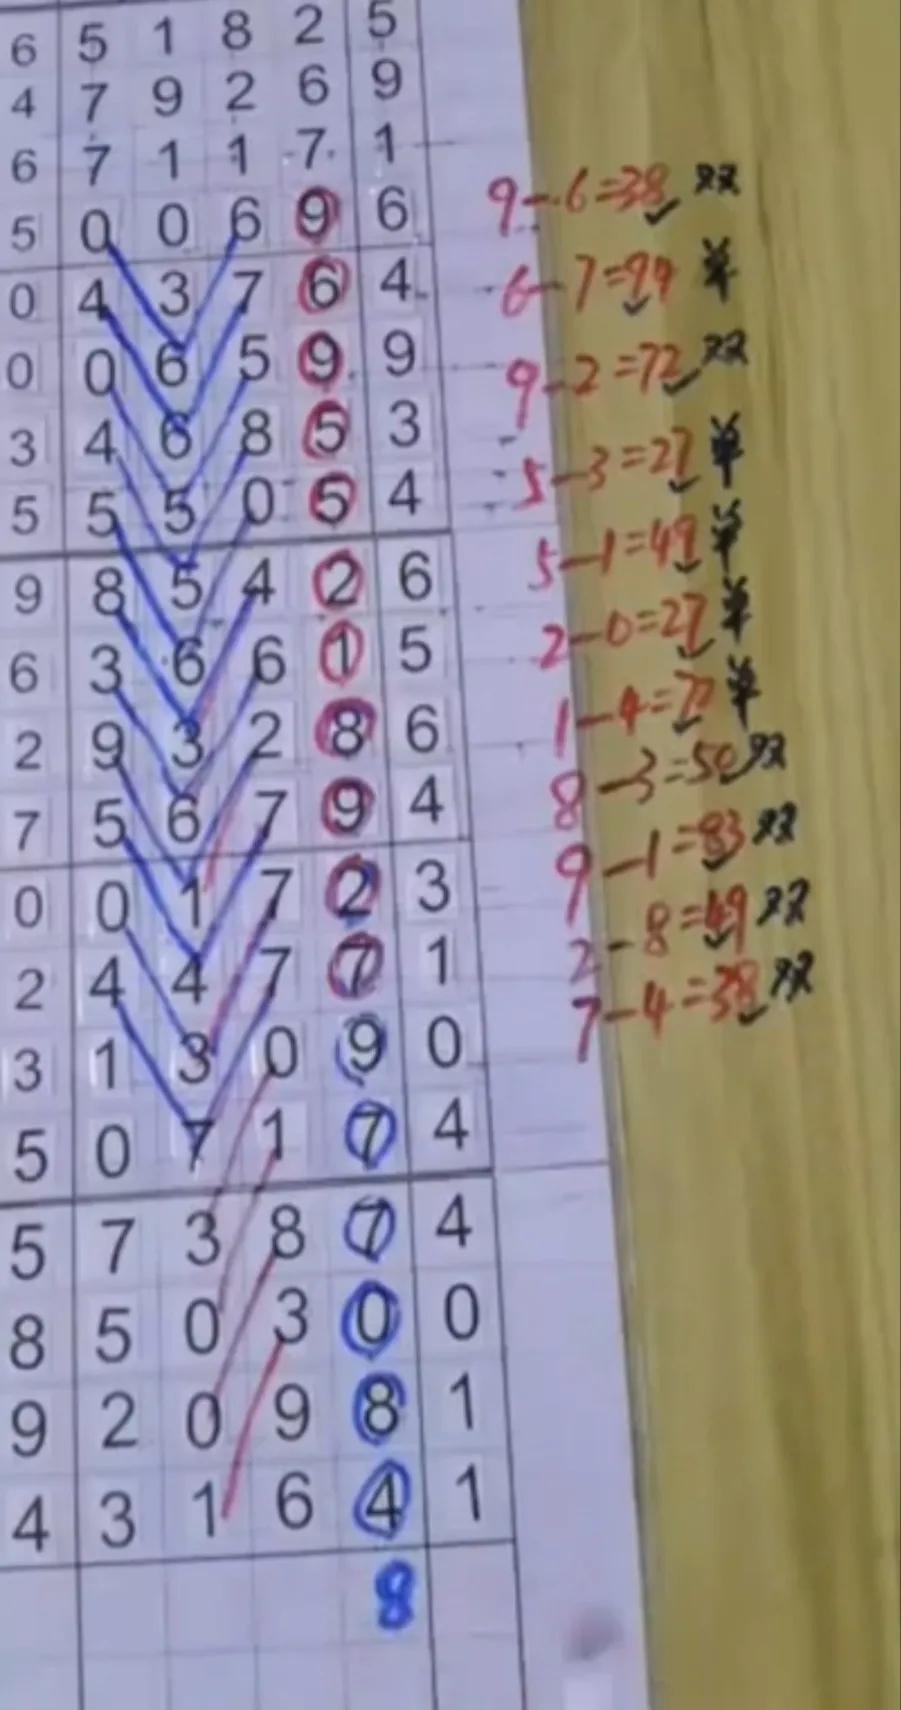 6 5 1 8 2 5
4 7 9 2 6 9
6 7 1 1 7 1
5 0 0 6 9 6 9-6=38 双
0 4 3 7 6 4 6-7=94 单
0 0 6 5 9 9 9-2=72 双
3 4 6 8 5 3 5-3=27 单
5 5 5 0 5 4 5-1=49 单
9 8 5 4 2 6 2-0=27 单
6 3 6 6 1 5 1-4= 单
2 9 3 2 8 6 8-3=50 双
7 5 6 7 9 4 9-1=83 双
0 0 1 7 2 3 2-8=49 双
2 4 4 7 7 1 7-4=38 双
3 1 3 0 9 0
5 0 7 1 7 4
5 7 3 8 7 4
8 5 0 3 0 0
9 2 0 9 8 1
4 3 1 6 4 1
8